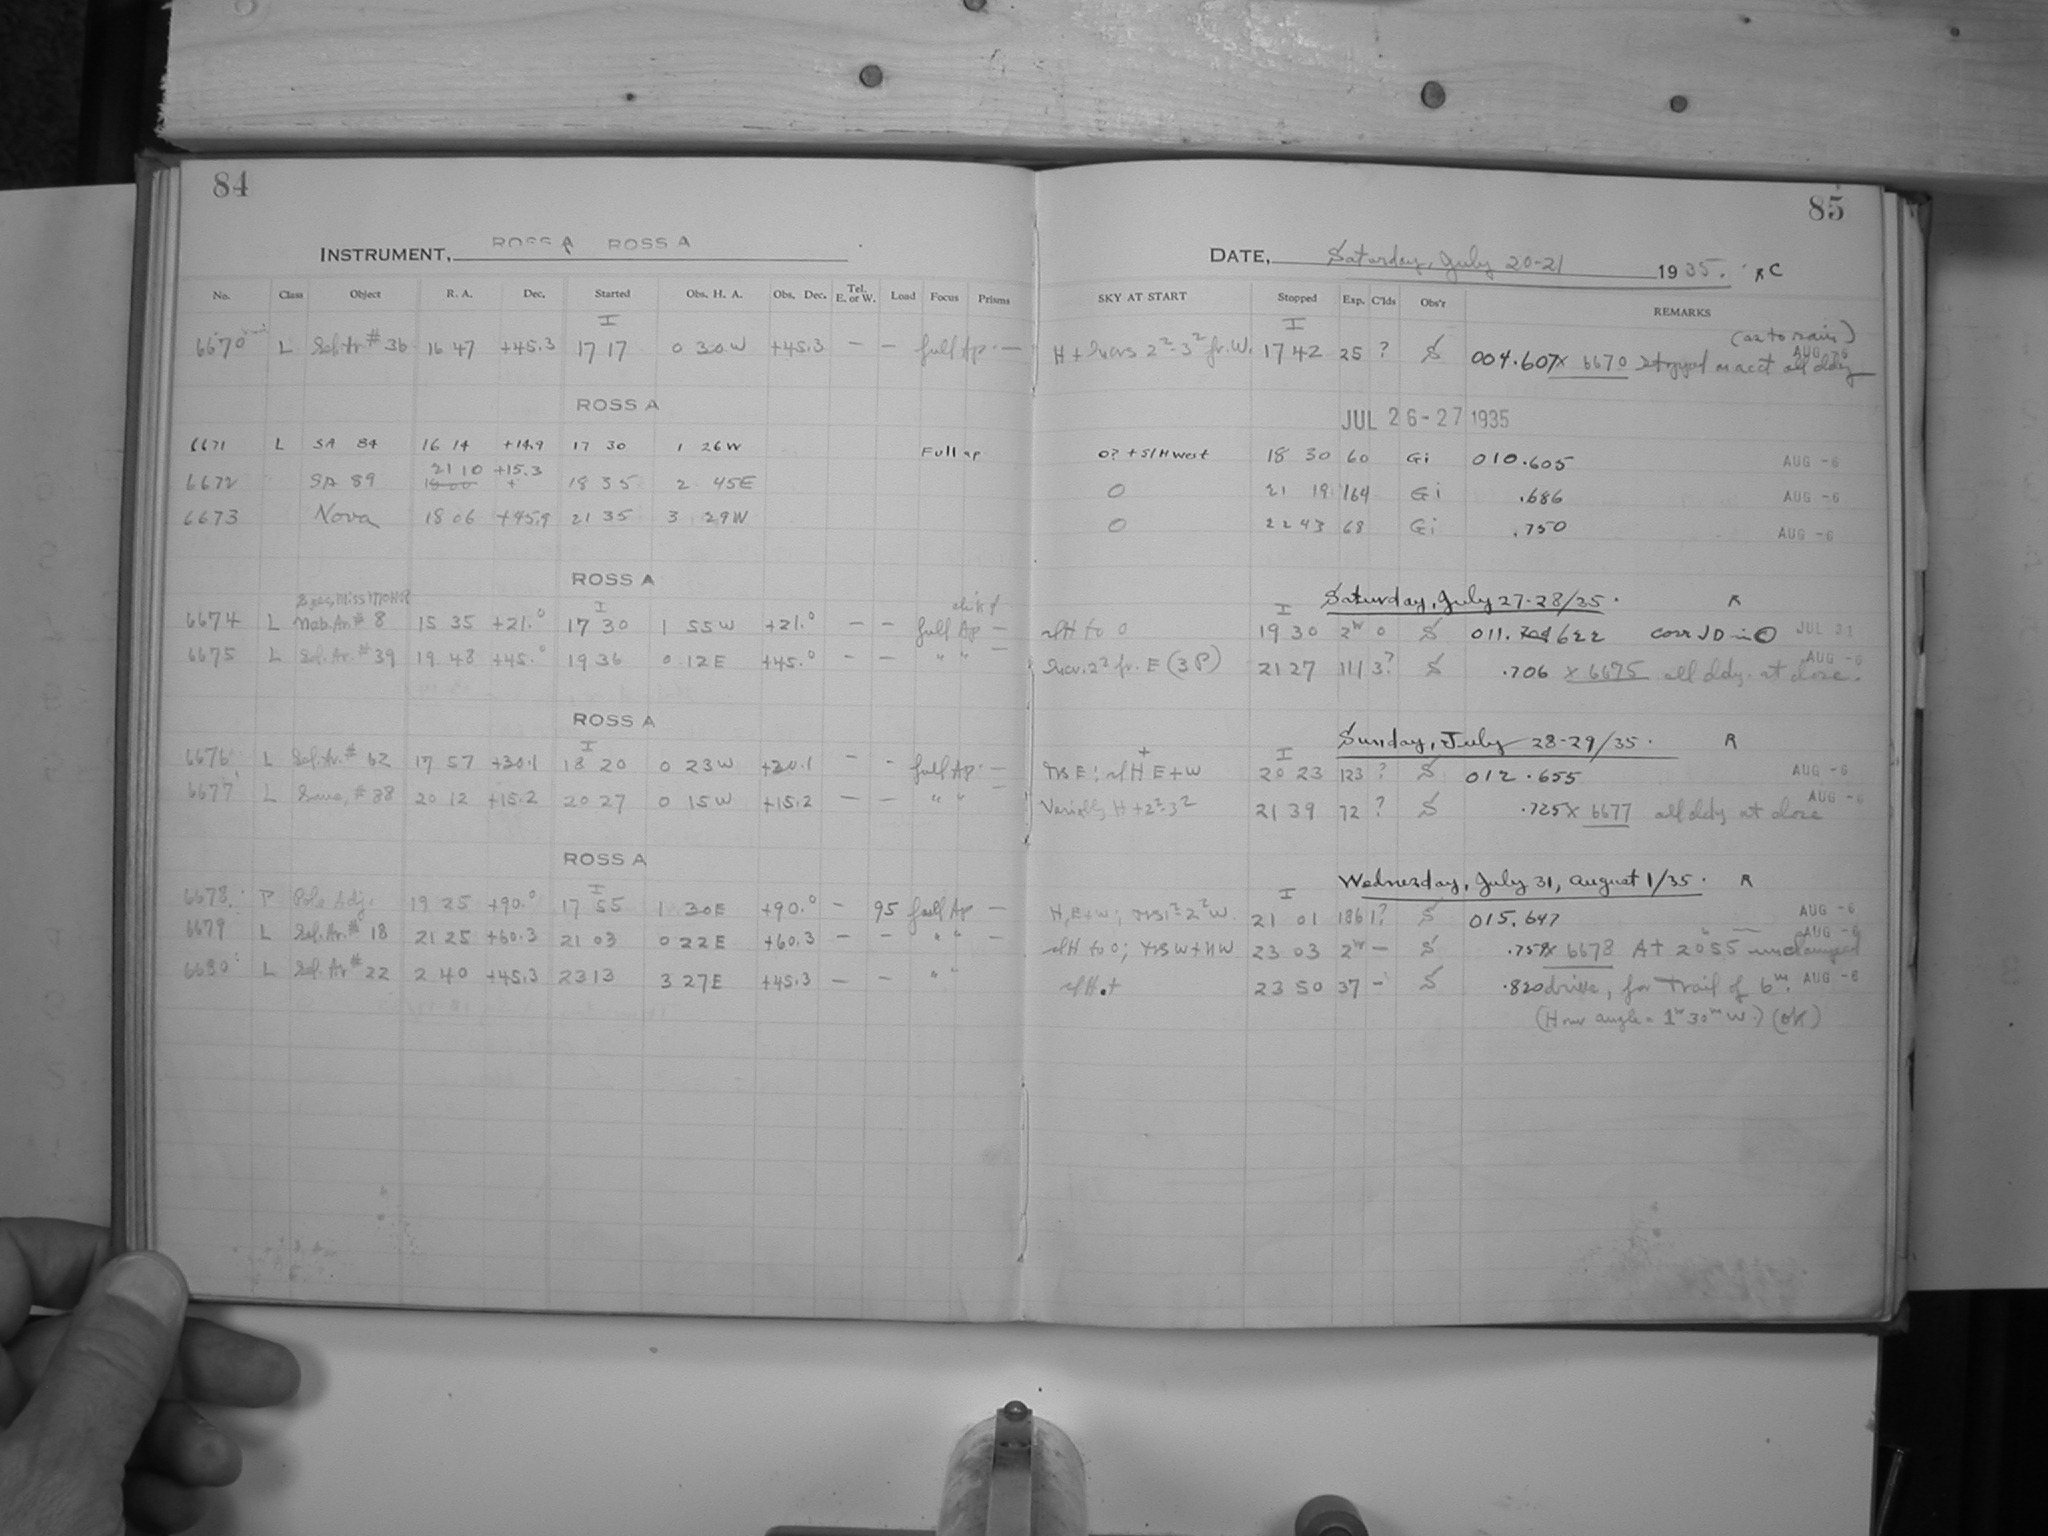 84
INSTRUMENT, ROSS A ROSS A
No. Class Object R. A. Dec. Started Obs. H. A. Obs. Dec. Tel. E. or W. Load Focus Prisms
I
6670 L Sel. Ar # 36 16 47 +45.3 17 17 0 30W +45.3 — — full Ap. —
ROSS A
6671 L SA 84 16 14 +14.9 17 30 1 26W Full ap
6672 SA 89 21 10 +15.3 18 35 2 45E
6673 Nova 18 06 +45.9 21 35 3 29W
ROSS A
I
6674 L Neb. Ar. # 8 15 35 +21.° 17 30 1 55W +21.° — — full Ap —
6675 L Sel. Ar. # 39 19 48 +45.° 19 36 0 12E +45.° — — " " —
ROSS A
I
6676 L Sel. Ar. # 62 17 57 +30.1 18 20 0 23W +30.1 — - full Ap. —
6677 L # 88 20 12 +15.2 20 27 0 15W +15.2 — — " " —
ROSS A
I
6678. P Pole Adj. 19 25 +90.° 17 55 1 30E +90.° - 95 full Ap —
6679 L Sel. Ar. # 18 21 25 +60.3 21 03 0 22E +60.3 — - " " —
6680 L Sel. Ar # 22 2 40 +45.3 23 13 3 27E +45.3 — — " "
85
DATE, Saturday, July 20-21 1935. R C
SKY AT START Stopped Exp. C'lds Obs'r REMARKS
I
(as to rain)
17 42 25 ? S 004.607 x 6670 stopped on acct all cldy AUG -6
JUL 26-27 1935
0? + S/H West 18 30 60 Gi 010.605 AUG -6
0 21 19 164 Gi .686 AUG -6
0 22 43 68 Gi .750 AUG -6
Saturday, July 27-28/35. R
I
slH to 0 19 30 2ʰ 0 S 011. 622 corr JD in JUL 31
fr. E (3 P) 21 27 111 3? S .706 x 6675 all cldy. at close. AUG -6
Sunday, July 28-29/35. R
I
slH E+W 20 23 123 ? S 012.655 AUG -6
Variably H +2²-3² 21 39 72 ? S .725 x 6677 all cldy at close AUG -6
Wednesday, July 31, August 1/35. R
I
H, E+W; 21 01 186 1? S 015.647 AUG -6
slH to 0; W+NW 23 03 2ʰ — S .759 x 6678 At 20 55 unclamped AUG -6
slH.+ 23 50 37 - S .820 drive, for Trail of 6ᵐ. AUG -6
(Hour angle = 1ʰ 30ᵐ W.) (OK)